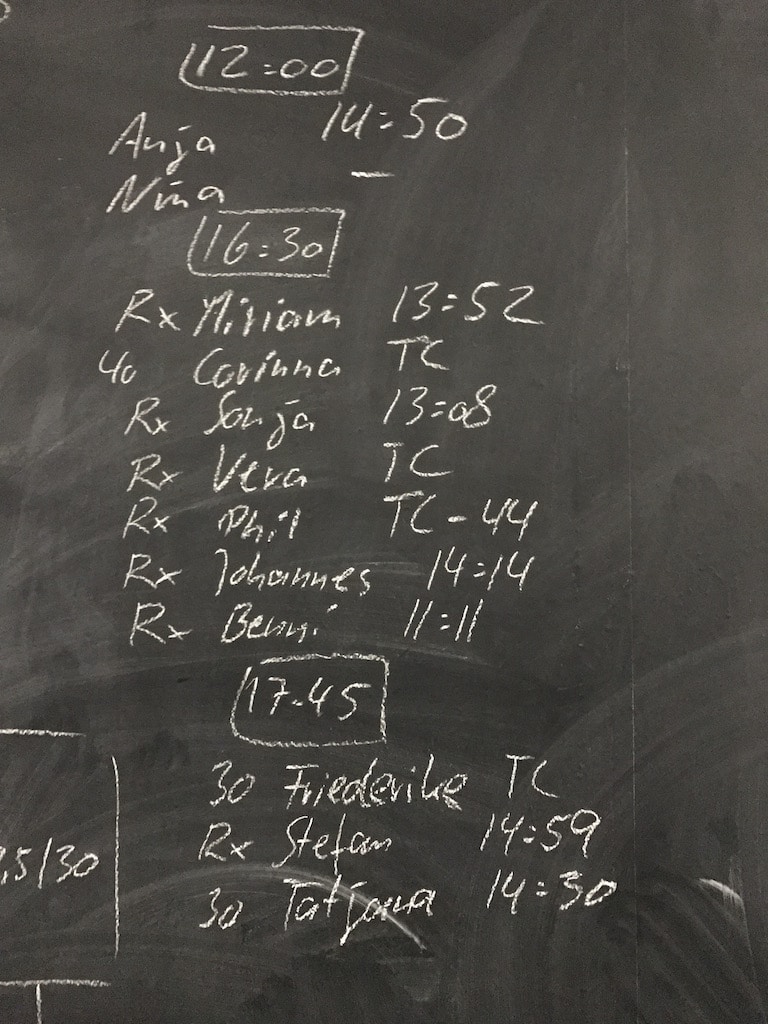 12:00
Anja 14:50
Nina –
16:30
Rx Miriam 13:52
40 Corinna TC
Rx Sonja 13:08
Rx Vera TC
Rx Phil TC-44
Rx Johannes 14:14
Rx Benni 11:11
17:45
30 Friederike TC
Rx Stefan 14:59
30 Tatjana 14:30
,5/30